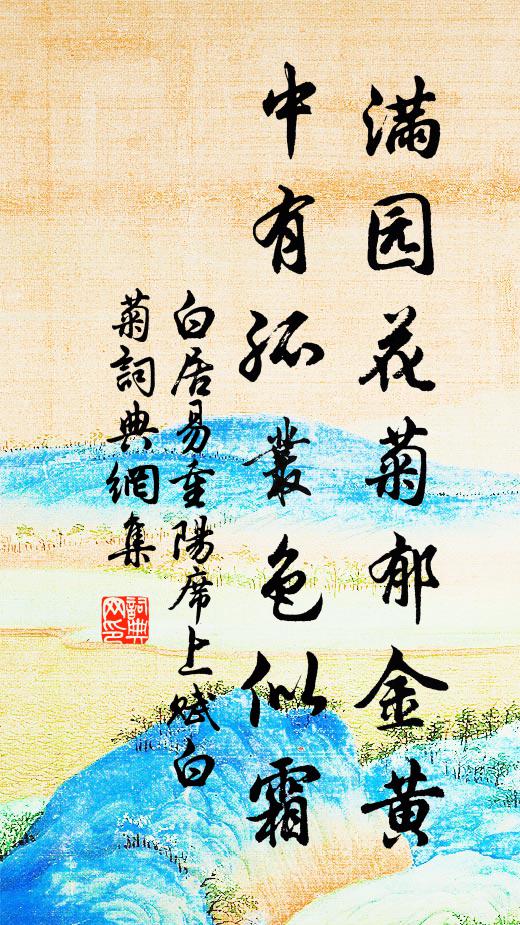 满园花菊郁金黄
中有孤叢色似霜
白居易重陽席上赋白
菊詞典網集
詞典网印